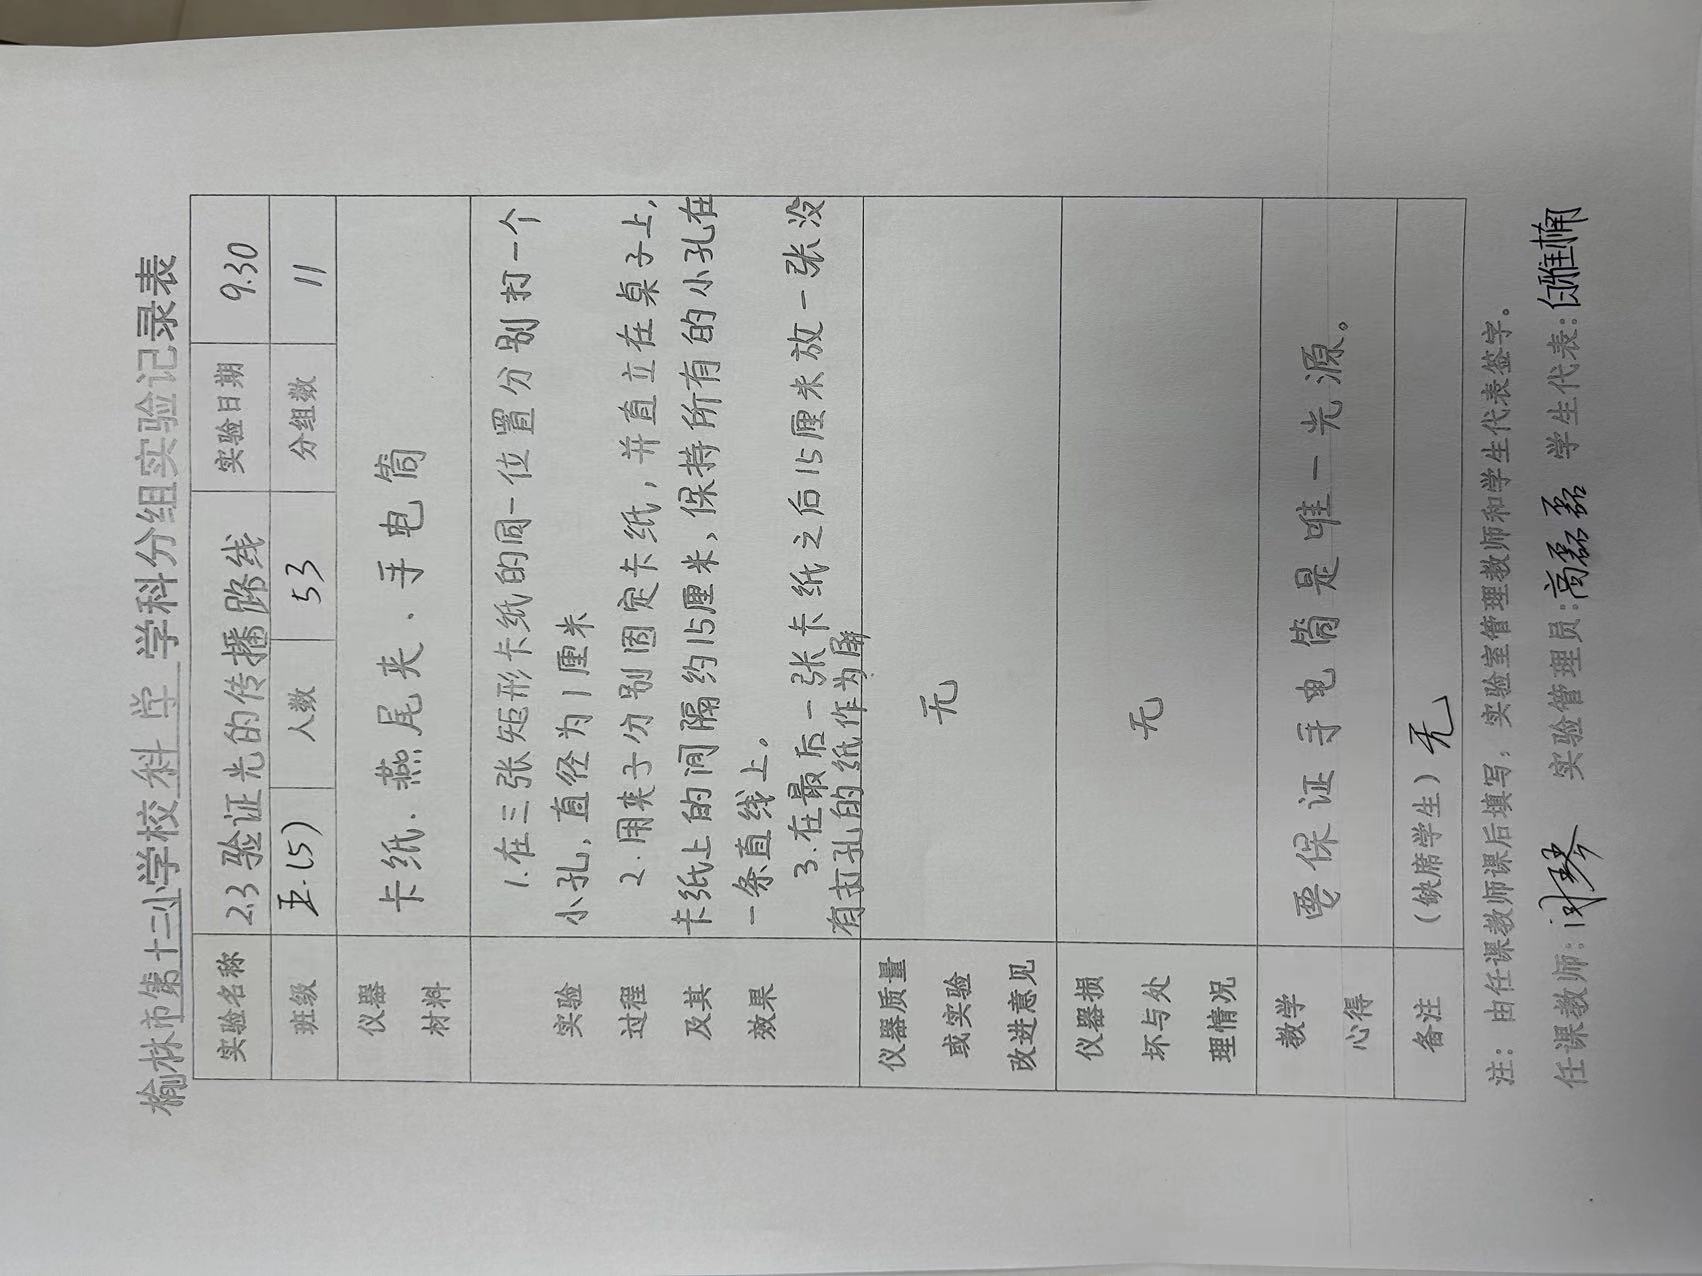 榆林市第十三小学校 科学 学科分组实验记录表
实验名称 2.3验证光的传播路线 实验日期 9.30
班级 五.(5) 人数 53 分组数 11
仪器材料 卡纸.燕尾夹.手电筒
实验过程及其效果
1.在三张矩形卡纸的同一位置分别打一个
小孔,直径为1厘米
2.用夹子分别固定卡纸,并直立在桌子上,
卡纸上的间隔约15厘米,保持所有的小孔在
一条直线上。
3.在最后一张卡纸之后15厘米放一张没
有打孔的纸作为屏
仪器质量或实验改进意见 无
仪器损坏与处理情况 无
教学心得 要保证手电筒是唯一光源。
备注 (缺席学生) 无
注:由任课教师课后填写,实验室管理教师和学生代表签字。
任课教师: 琴 实验管理员:高磊磊 学生代表:白雅楠